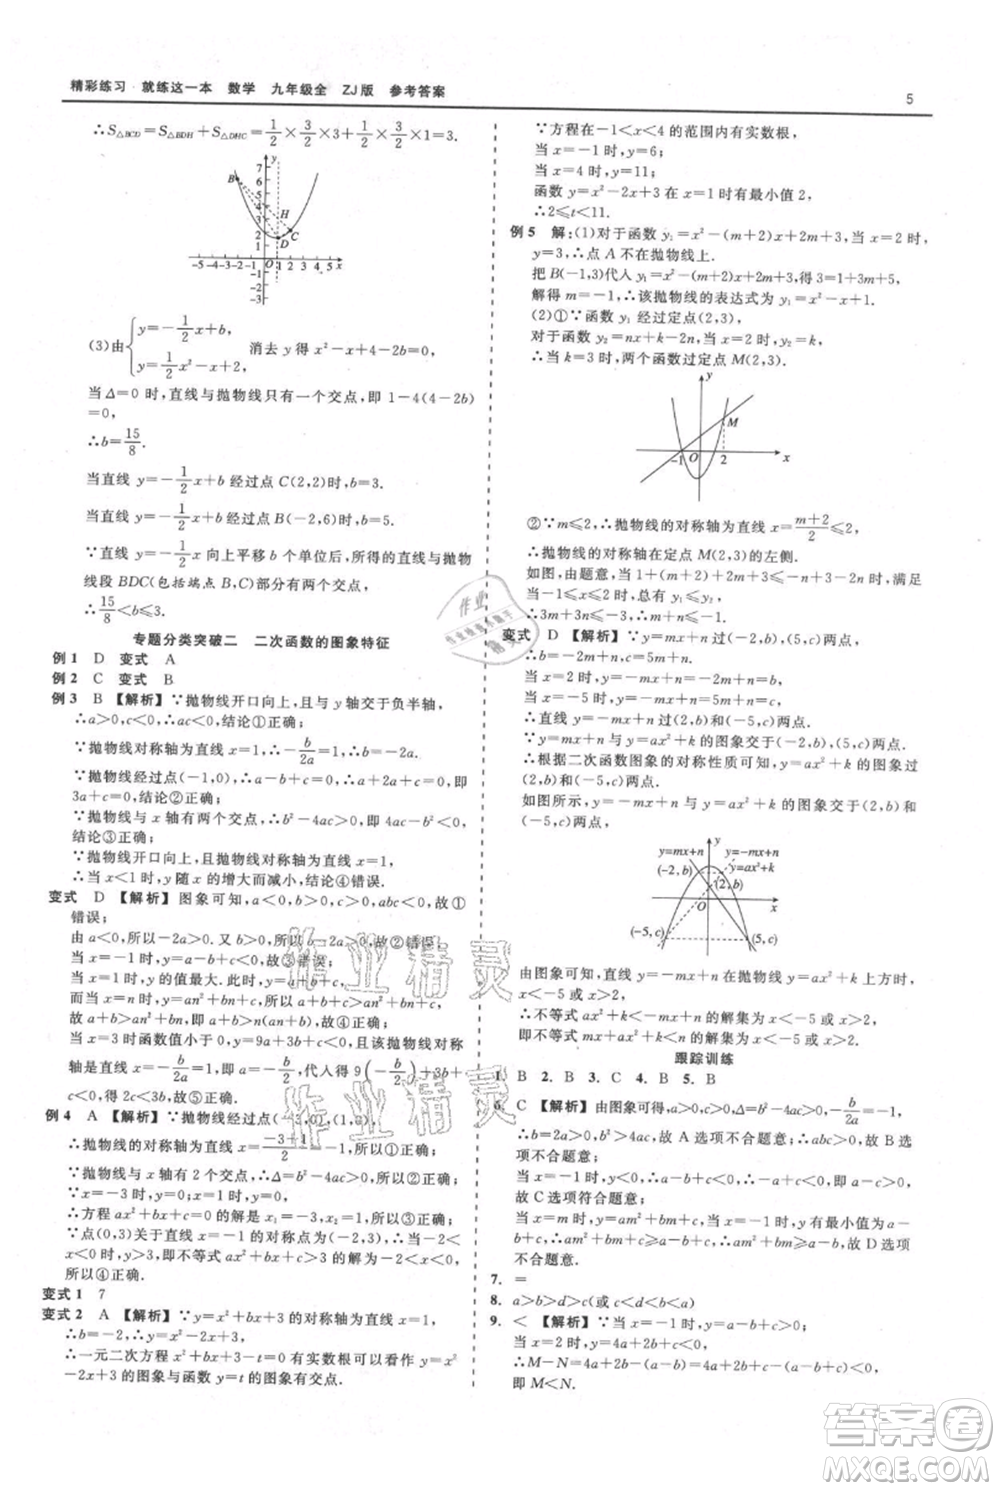 精彩练习·就练这一本 数学 九年级全 ZJ版 参考答案
5
∴S△BCD=S△BDH+S△DHC=1/2×3/2×3+1/2×3/2×1=3.
y
7
6
5
4
3
2
1
B
H
C
D
O
-5-4-3-2-1
1 2 3 4 5 x
-1
-2
-3
(3)由{y=-1/2x+b, y=1/2x²-x+2, 消去y得x²-x+4-2b=0.
当Δ=0时,直线与抛物线只有一个交点,即1-4(4-2b)
=0,
∴b=15/8.
当直线y=-1/2x+b经过点C(2,2)时,b=3.
当直线y=-1/2x+b经过点B(-2,6)时,b=5.
∵直线y=-1/2x向上平移b个单位后,所得的直线与抛物
线段BDC(包括端点B,C)部分有两个交点,
∴15/8<b≤3.
专题分类突破二 二次函数的图象特征
例1 D 变式 A
例2 C 变式 B
例3 B 【解析】∵抛物线开口向上,且与y轴交于负半轴,
∴a>0,c<0,结论①正确;
∵抛物线对称轴为直线x=1,∴-b/2a=1,∴b=-2a.
∵抛物线经过点(-1,0),∴a-b+c=0,
∴a+2a+c=0,即3a+c=0,结论②正确;
∵抛物线与x轴有两个交点,∴b²-4ac>0,即4ac-b²<0,
结论③正确;
∵抛物线开口向上,且抛物线对称轴为直线x=1,
∴当x<1时,y随x的增大而减小,结论④错误.
变式 D 【解析】由图象可知,a<0,b>0,c>0,abc<0,故①
错误;
由a<0,所以-2a>0,又b>0,所以b-2a>0,故②错误;
当x=1时,y的值最大.此时,y=a+b+c,
而当x=n时,y=an²+bn+c,所以a+b+c>an²+bn+c,
故a+b>an²+bn,即a+b>n(an+b),故③正确;
当x=3时函数值小于0,y=9a+3b+c<0,且抛物线对称轴
是直线x=-b/2a=1,即a=-b/2,代入得9(-b/2)+3b+
c<0,得2c<3b,故④正确.
例4 A 【解析】∵抛物线经过点(-3,0),(1,0),
∴抛物线的对称轴为直线x=(-3+1)/2=-1,①正确;
∵抛物线与x轴的交点坐标为(-3,0),(1,0),
∴x=-3时,y=0,x=1时,y=0,
∴方程ax²+bx+c=0的解是x₁=-3,x₂=1,②正确;
∵点(0,3)关于直线x=-1的对称点为(-2,3),∴当-2<
x<0时,y>3,③正确;
由图象可得,抛物线与x轴有两个交点,∴当y=0时,
b²-4ac>0,④正确.
变式1 7
变式2 A 【解析】∵y=x²+bx+3的对称轴为直线x=1,
∴b=-2,∴y=x²-2x+3,
∴一元二次方程x²+bx+3-t=0的实数根可以看作y=x²
-2x+3的图象与函数y=t的图象有交点.
∵方程在-1<x<4的范围内有实数根,
当x=-1时,y=6;
当x=4时,y=11;
函数y=x²-2x+3在x=1时有最小值2,
∴2≤t<11.
例5 解:(1)对于函数y₁=x²-(m+2)x+2m+3,当x=2时,
y=3,∴点A不在抛物线上.
把B(-1,3)代入y₁=x²-(m+2)x+2m+3,得3=1+3m+5,
解得m=-1,∴该抛物线的表达式为y₁=x²-x+1.
(2)①∵函数y₁经过定点(2,3),
对于函数y₂=nx+k,当x=2时,y₂=2n+k=3,
∴当k=3时,两个函数过定点M(2,3).
y
M
-1
O
2
x
②∵m≤2,∴抛物线的对称轴为直线x=(m+2)/2≤2,
∴抛物线的对称轴在定点M(2,3)的左侧.
如图,由题意,当1+(m+2)+2m+3≤0时,
满足当-1≤x≤2时,总有y₁≤y₂,
∴3m+6≤0,∴m≤-2.
变式 D 【解析】∵直线y=mx+n过(-2,b),(5,c)两点,
∴b=-2m+n,c=5m+n.
当x=2时,-mx+n=-2m+n=b,
当x=-5时,-mx+n=5m+n=c,
∴直线y=-mx+n过(2,b),(-5,c)两点.
∵y=mx+n与y=ax²+k的图象交于(-2,b),(5,c)两点,
∴根据二次函数图象的对称性质可知,y=ax²+k的图象过
(2,b)和(-5,c)两点.
如图所示,y=-mx+n与y=ax²+k的图象交于(2,b)和
(-5,c)两点,
y=-mx+n
y
y=mx+n
y=ax²+k
(-2,b)
(2,b)
O
x
(-5,c)
(5,c)
由图象可知,直线y=-mx+n在抛物线y=ax²+k上方时,
x<-5或x>2,
∴不等式ax²+k<-mx+n的解集为x<-5或x>2,
即不等式ax²+mx+k<n的解集为x<-5或x>2.
跟踪训练
1. B 2. B 3. C 4. B 5. B
6. C 【解析】由图象可知a>0,c>0,Δ=b²-4ac>0,-b/2a=1,
∴b=-2a<0,故A选项不合题意;∴abc<0,故B
选项不合题意;
当x=1时,y<0,∴a+b+c<0,∴-b/2+b+c<0,即b+2c<0,
故C选项符合题意;
当x=-1时,y>0,∴a-b+c>0,故D选项
不合题意.
7. =
8. a>b>d>c(或c<d<b<a)
9. < 【解析】当x=-1时,y=a-b+c>0,
当x=2时,y=4a+2b+c<0,
∴M-N=4a+2b-(a-b)=4a+2b+c-(a-b+c)<0,
即M<N.
作业精灵
作业精灵
答案圈
MXQE.COM